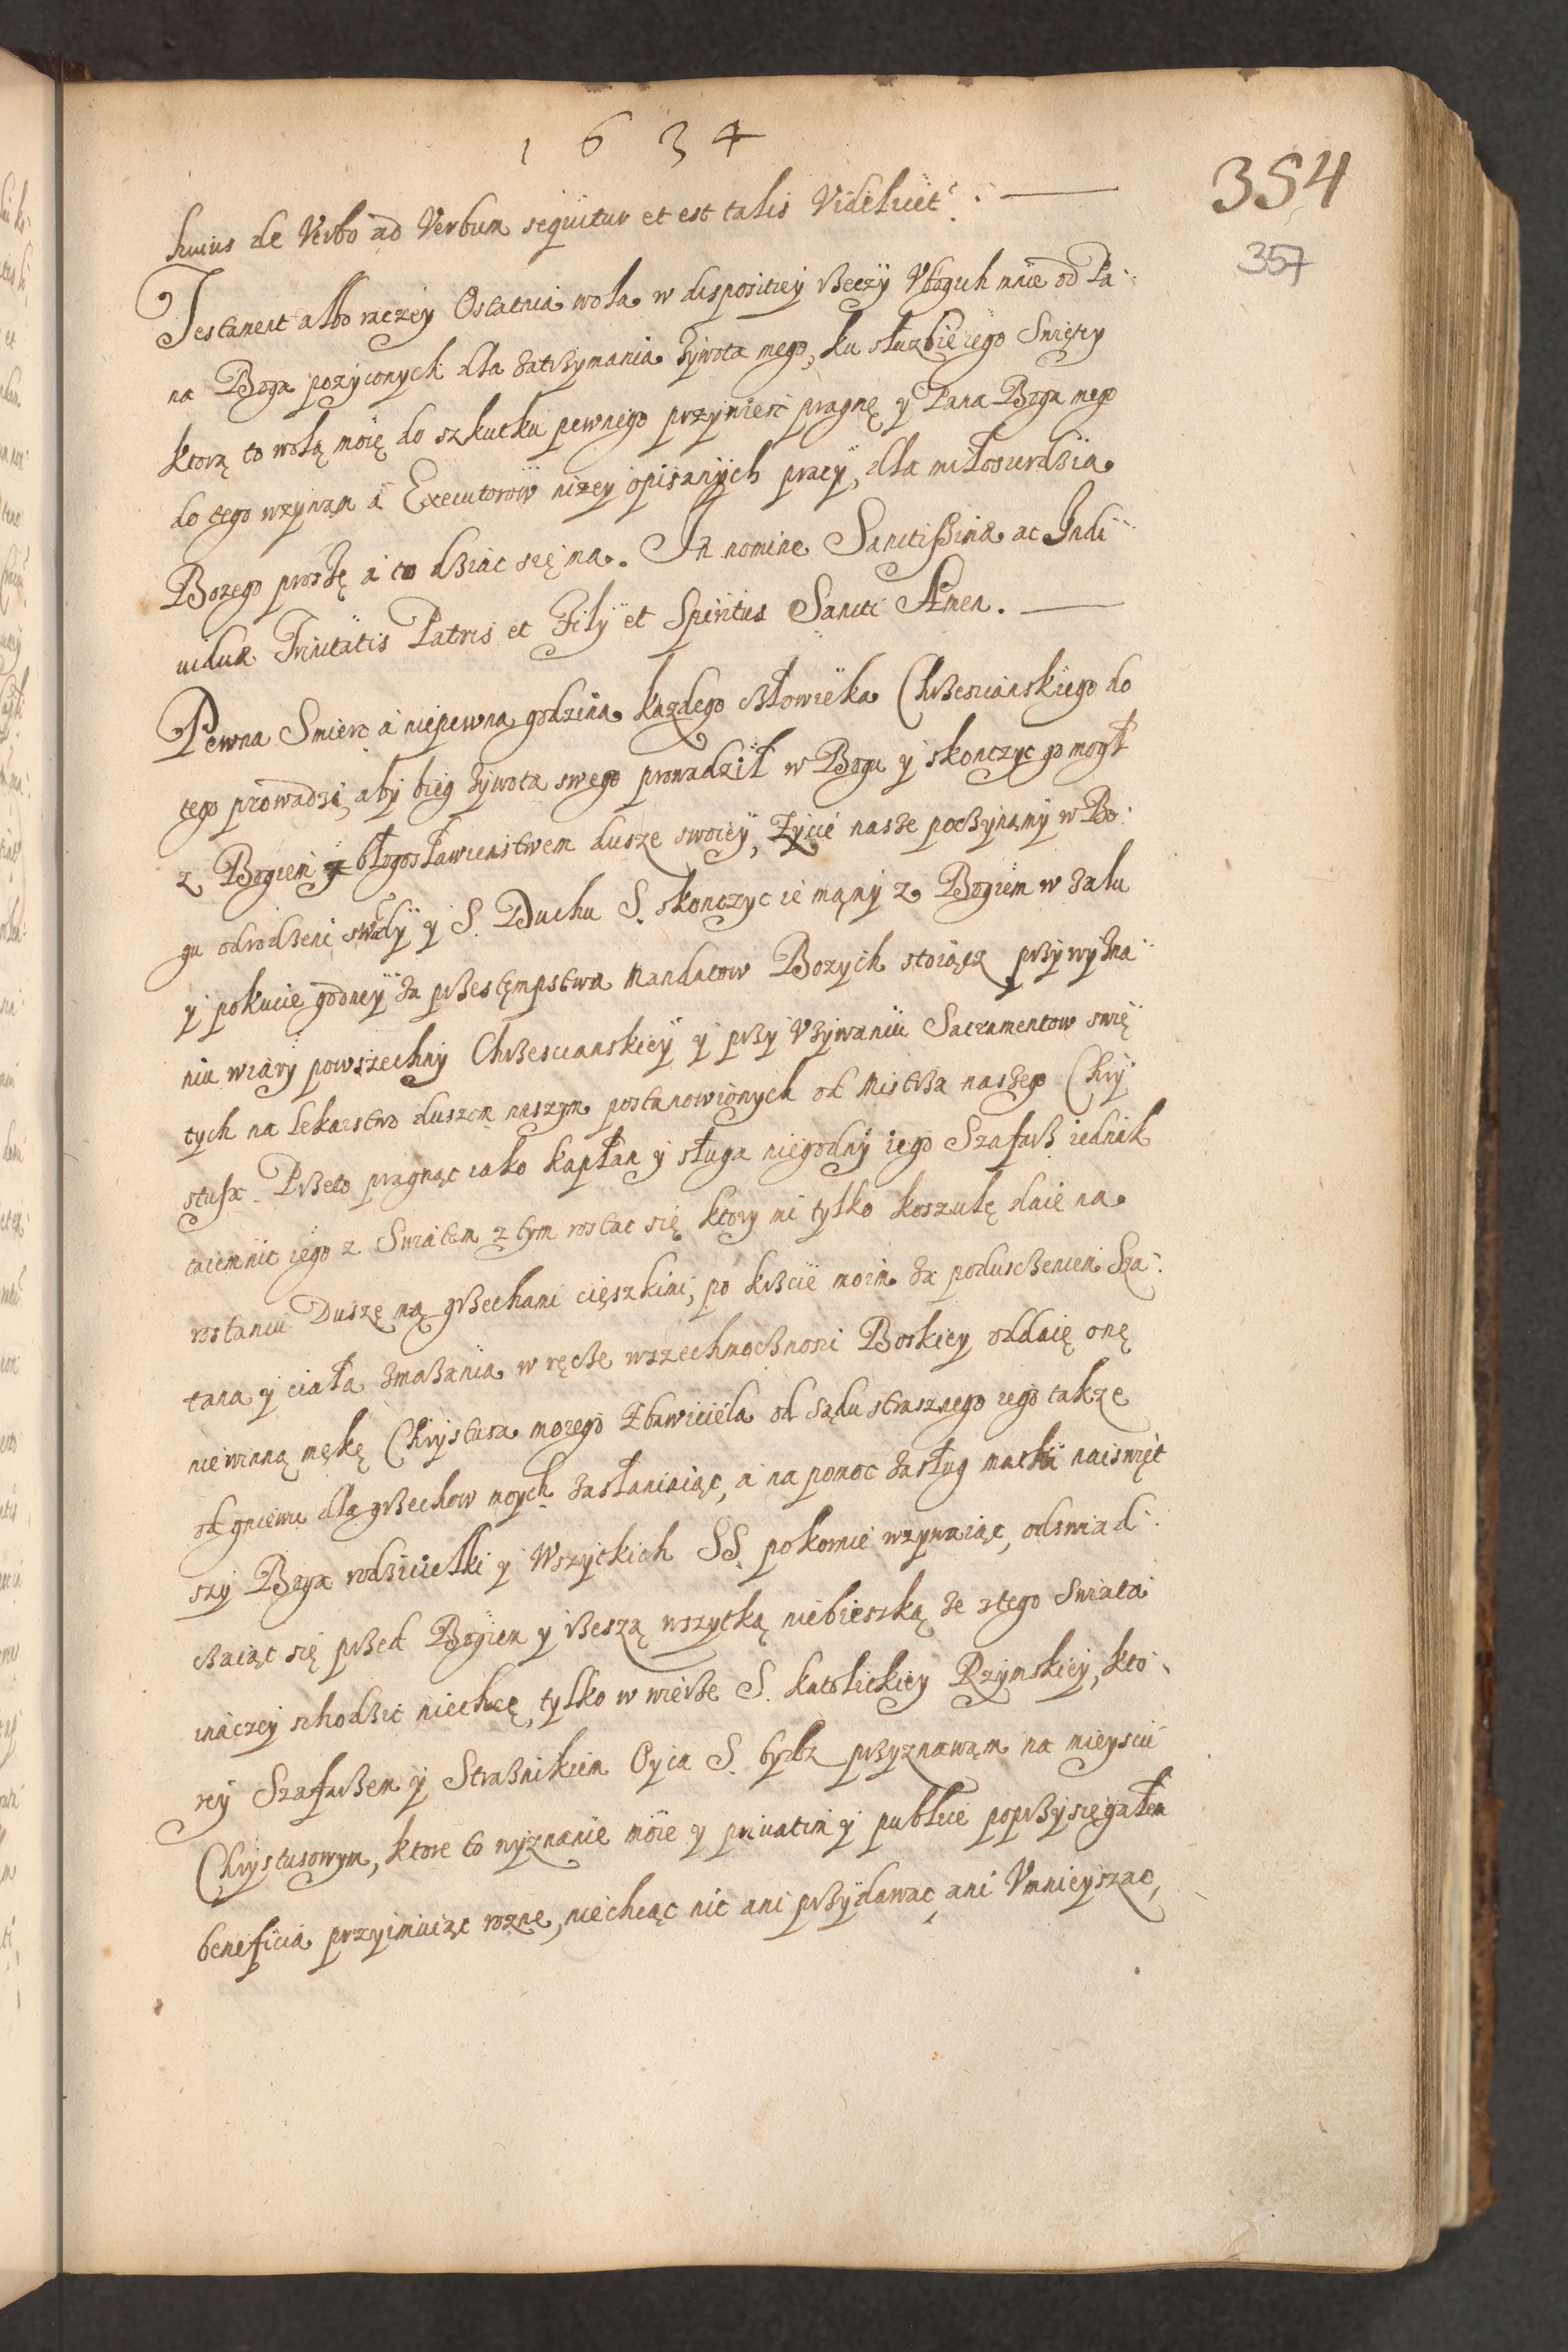 1634
354
357
huius de Verbo ad Verbum sequitur et est talis Videlicet :
Testament albo raczey Ostatnia wola w dispositiey Rzeczy Vbogich mnie od Pa:
na Boga pozyconych dla zatrzymania zywota mego, ku służbie iego Swięty
ktorą to wolą moię do szkutku pewnego przyniesc pragnę y Pana Boga mego
do tego wzynam a Executorow nizey opisanych pracy, dla miłosierdzia
Bozego proszę a to dziac się ma. In nomine Sanctissimæ ac Indi
uiduæ Trinitatis Patris et Filÿ et Spiritus Sancti Amen.
Pewna Smierc a niepewna godzina kazdego człowieka Chrzescianskiego do
tego prowadzi, aby bieg zywota swego prowadził w Bogu y skonczyc go mogł
z Bogiem z błogosławienstwem dusze swoiey, Zycie nasze poczynamy w Bo:
gu odrodzeni y S. Duchu S. skonczyc ie mamy z Bogiem w zalu
y pokucie godney za przestęmpstwa Mandatow Bozych stoiącz przy wyzna
niu wiary powszechny Chrzescianskiey y przy Vzywaniu Sacramentow swię
tych na lekarstwo duszom naszym postanowionych od Mistrza naszego Chry
stusa. Przeto pragnąc iako kapłan y sługa niegodny iego Szafarz iednak
taiemnic iego z Swiatem z tym rostac się ktory mi tylko koszulę daie na
rostaniu Duszę mą grzechami cięszkimi, po krzcie moim za poduszczeniem Sza:
tana y ciała zmazania w ręcze wszechmocznosci Boskiey oddaię onę
niewinną mękę Chrystusa mozego Zbawiciela od sądu strasznego iego takze
od gniewu dla grzechow moych zasłaniaiąc, a na pomoc zasług matki naiswięt
szy Boga rodzicielki y Wszytkich SS. pokornie wzywaiąc, odswiad:
czaiąc się przed Bogiem y Rzeszą wszytką niebieszką ze ztego swiata
inaczey schodzic niechcę, tylko w wierze S. katolickiey Rzymskiey, kto:
rey Szafarzem y Straznikiem Oyca S. bydz przyznawam na mieyscu
Chrystusowym, ktore to wyznanie moie y priuatim y publice poprzysięgałem
beneficia przyimuiąc rozne, niechcąc nic ani przydawac ani Vmnieyszac,